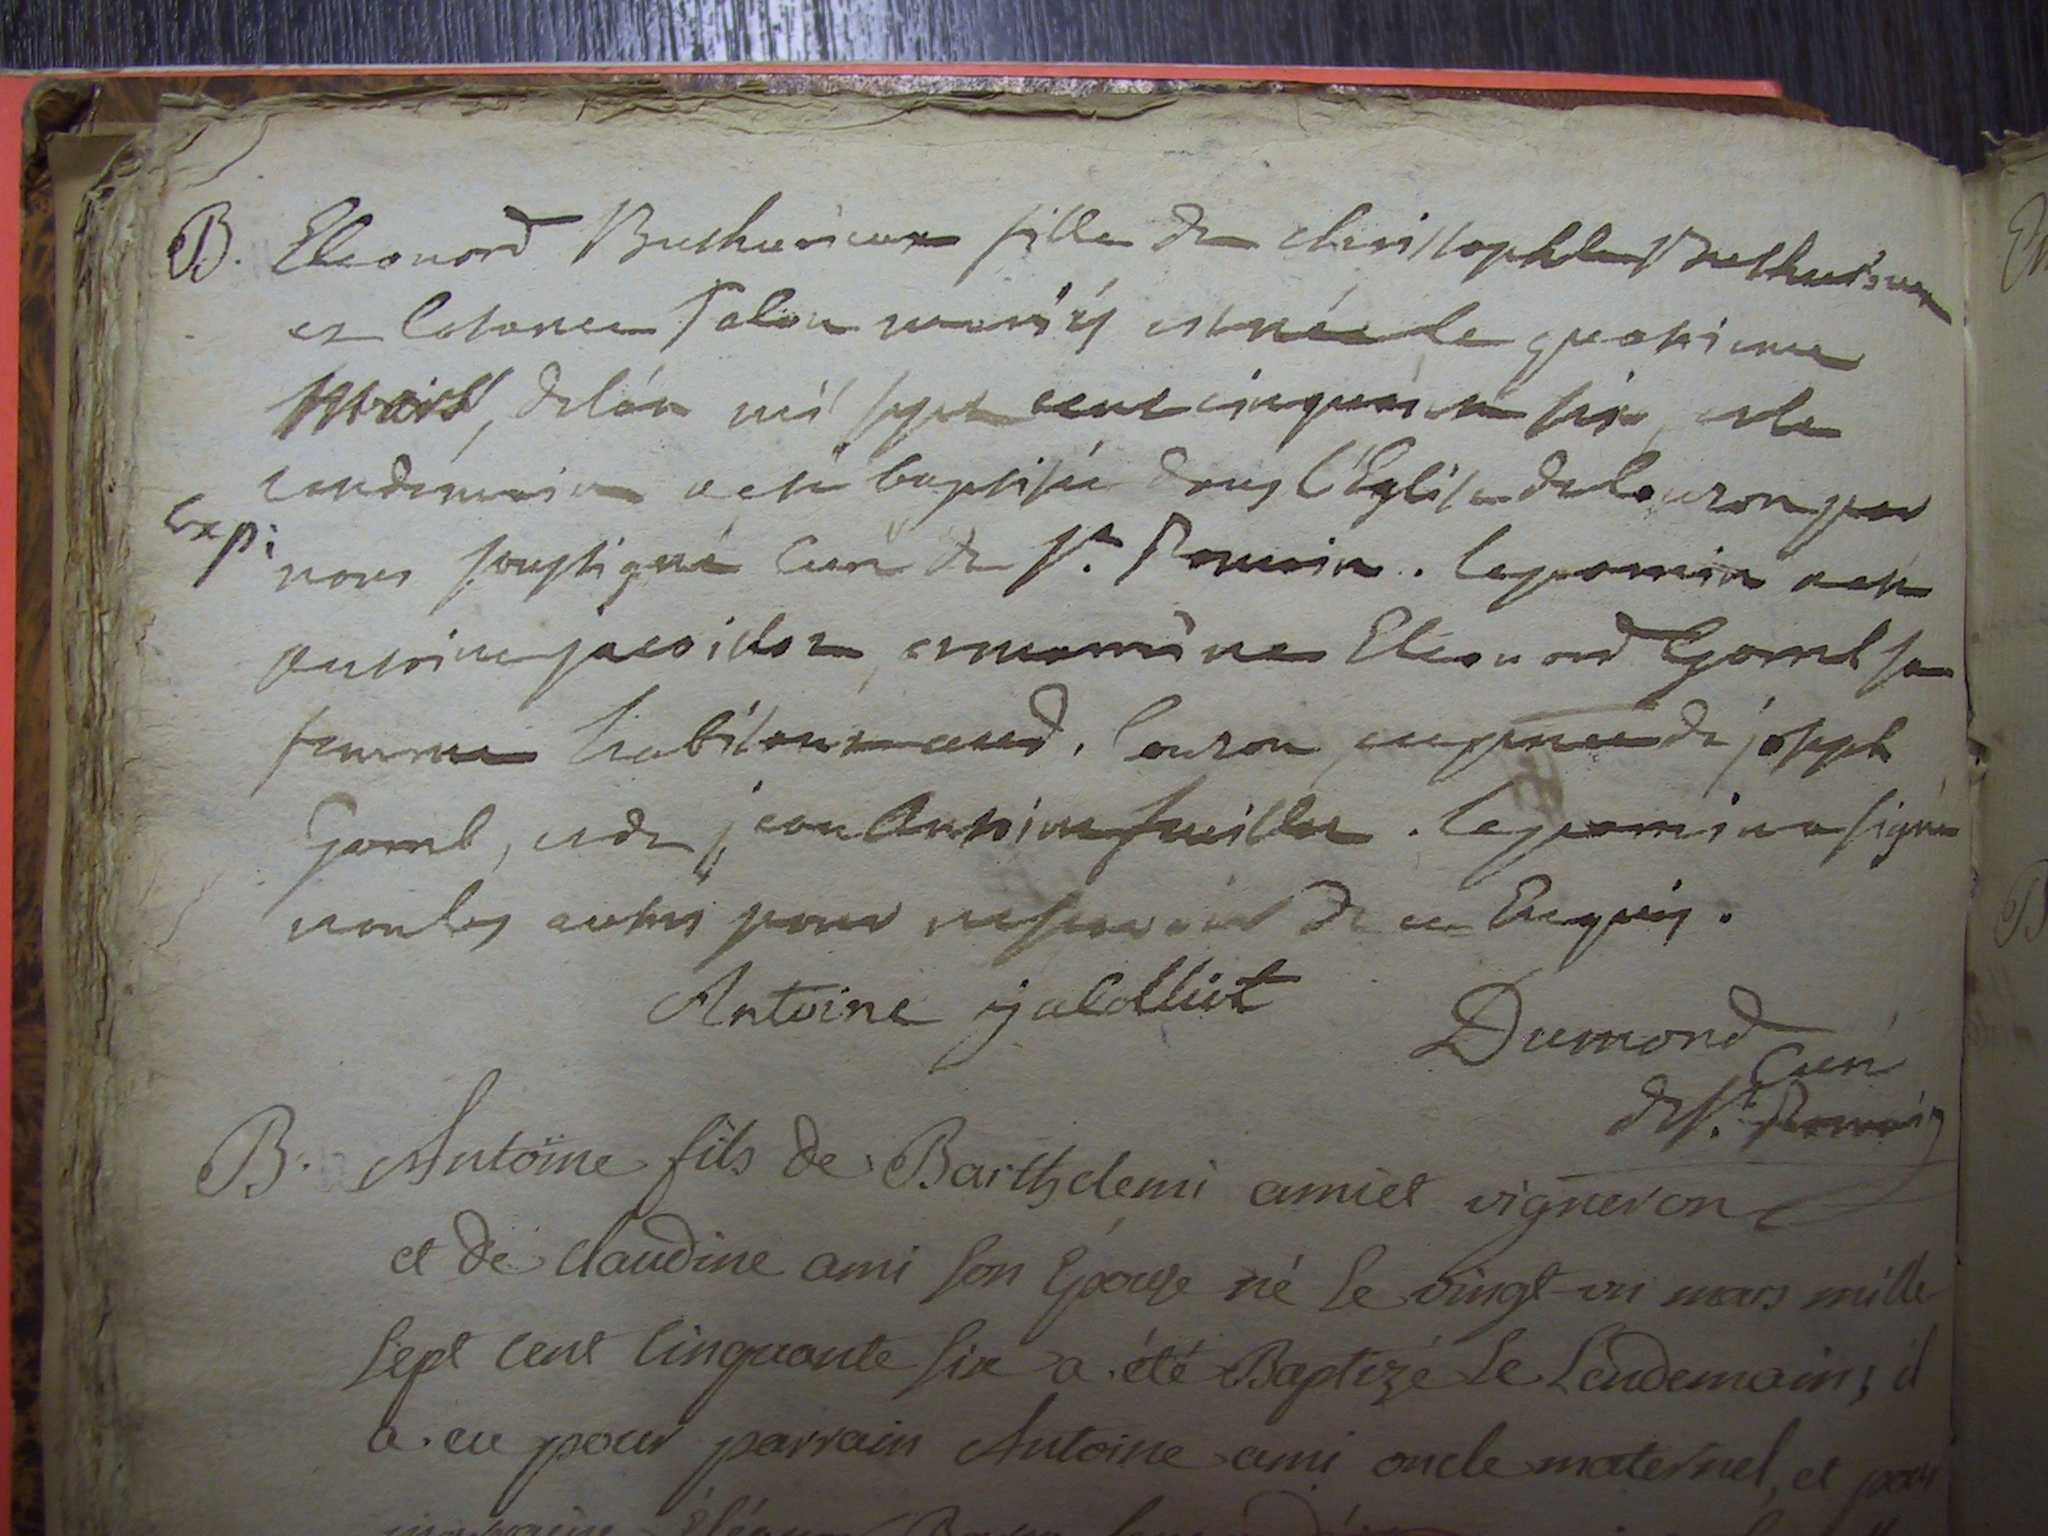 B. Eleonord Buthurieux fille de christophle
et Catarine Talon mariés est née le quatrieme
Mars, de lán mil sept cent cinquánte six, et le
lendemain a eté baptisée dans l'Église de Couzon par
Exp:
nous soussigné Curé de St. Romain. le parrain a eté
Antoine et marraine Eleonord Gomel sa
femme habitants aud. Couzon, en présence de joseph
Gomel, et de jean le parrain a signé
non les autres pour ne sçavoir de ce Enquis.
Antoine
Dumond
Curé
de St. Romain
B. Antoine fils de Barthelemi amiet vigneron
et de claudine ami son Épouse né le vingt-un mars mille
sept cent cinquante six a été Baptizé le Lendemain; il
a eu pour parrain Antoine ami oncle maternel, et pour